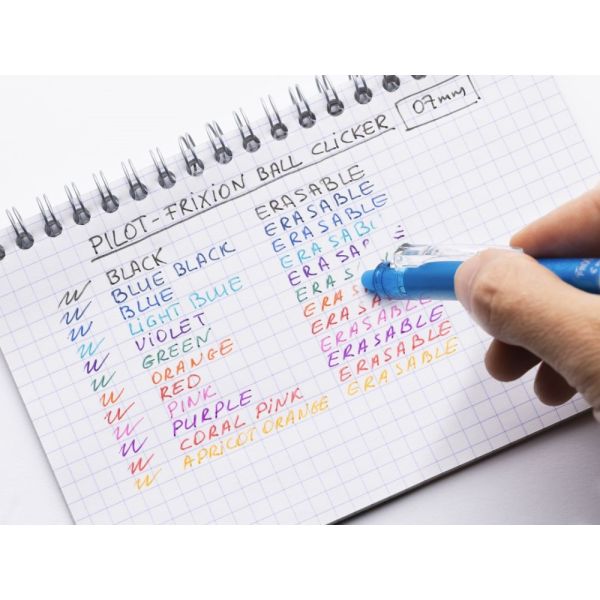 PILOT-FRIXION BALL CLICKER 07mm
BLACK ERASABLE
BLUE BLACK ERASABLE
BLUE ERASABLE
LIGHT BLUE ERASAB
ViOLET ERASA
GREEN ERAS
ORANGE ERAS
RED ERASA
PiNK ERASABLE
PURPLE ERASABLE
CORAL PiNK ERASABLE
APRiCOT ORANGE ERASABLE